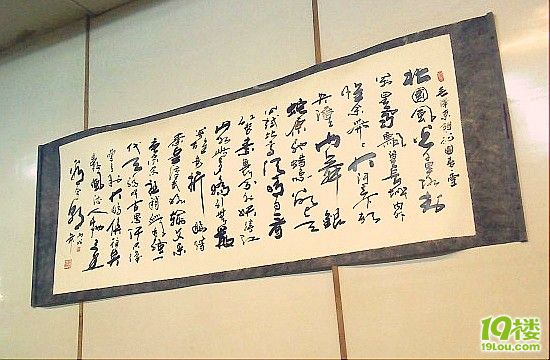 毛泽东词沁园春雪
北國風光千里冰封
万里雪飘望長城内外
惟余莽莽大河上下頓
失滔滔山舞銀
蛇原驰蜡象欲与天
公試比高須晴日看
红装素裹分外妖娆江
山如此多嬌引無數英
雄竞折腰惜
秦皇漢武略输文采
唐宗宋祖稍逊風骚一
代天骄成吉思汗只识
弯弓射大雕俱往矣
数風流人物还
看今朝
19楼
19lou.com